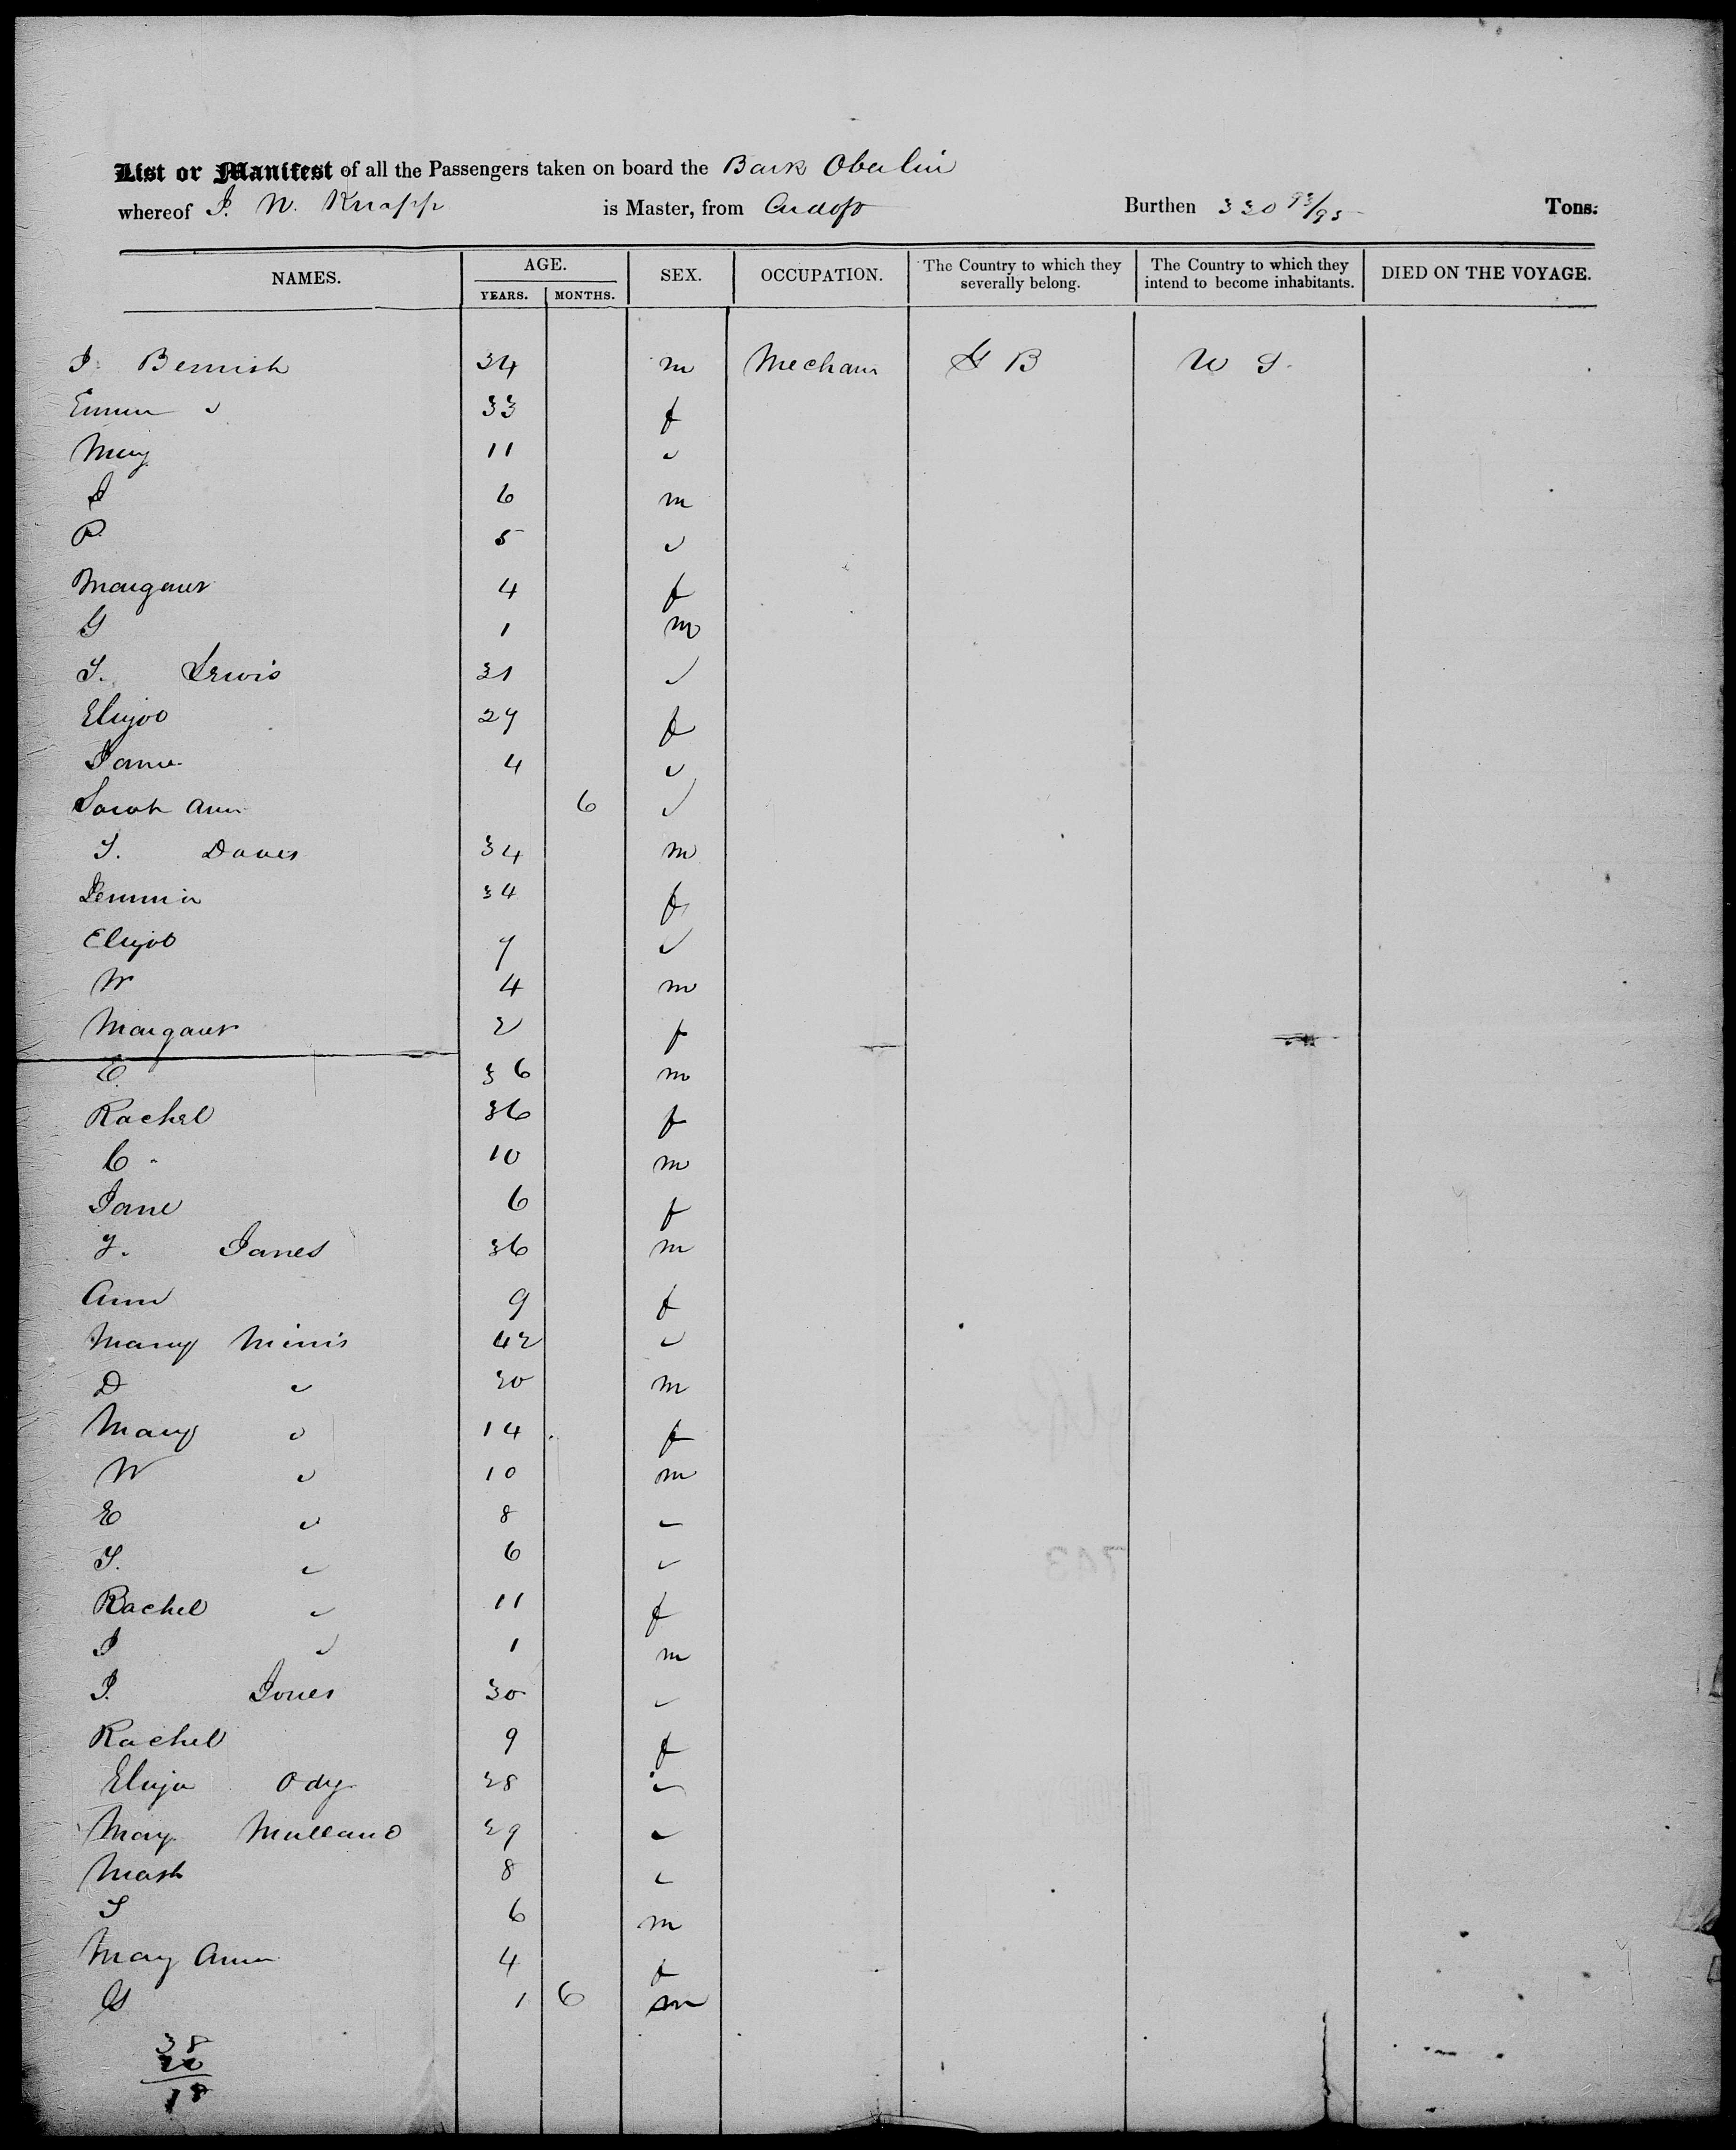 List or Manifest of all the Passengers taken on board the Bark Oberlin
whereof J. W. Knapp is Master, from Cardiff Burthen 330 93/95 Tons.
NAMES. AGE. SEX. OCCUPATION. The Country to which they severally belong. The Country to which they intend to become inhabitants. DIED ON THE VOYAGE.
YEARS. MONTHS.
J. Bemish 34 m Mechan G B U S.
Emma " 33 f
Mary 11 "
J 6 m
P. 5 "
Margaret 4 f
G 1 m
T. Lewis 31 "
Elizab 27 f
Jane 4 "
Sarah Ann 6 "
T. Daves 34 m
Jemmia 34 f
Elizab 7 "
W 4 m
Margaret 2 f
E. 36 m
Rachel 36 f
C. 10 m
Jane 6 f
T. James 36 m
Ann 9 f
Mary Minnis 42 "
D " 20 m
Mary " 14 f
W " 10 m
E " 8 "
T. " 6 "
Rachel " 11 f
J " 1 m
J. Jones 30 "
Rachel 9 f
Eliza Ody 28 "
May 29 "
8 "
S 6 m
May Ann 4 f
G 1 6 m
38
20
18